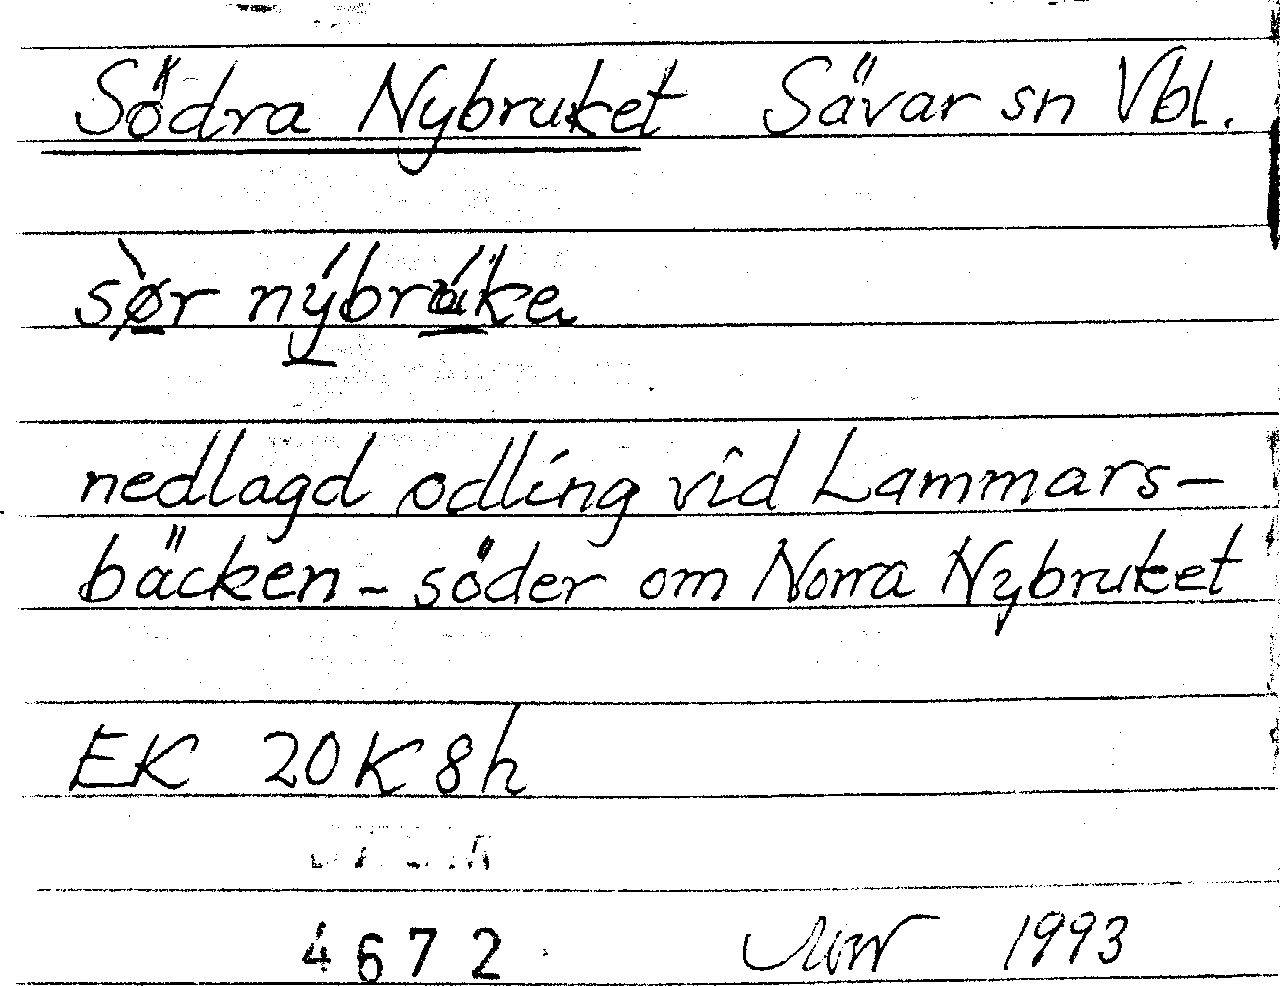 Södra Nybruket Sävar sn Vbl.
sø̀r nýbrúka
nedlagd odling vid Lammars-
bäcken - söder om Norra Nybruket
EK 20K 8h
4672 1993